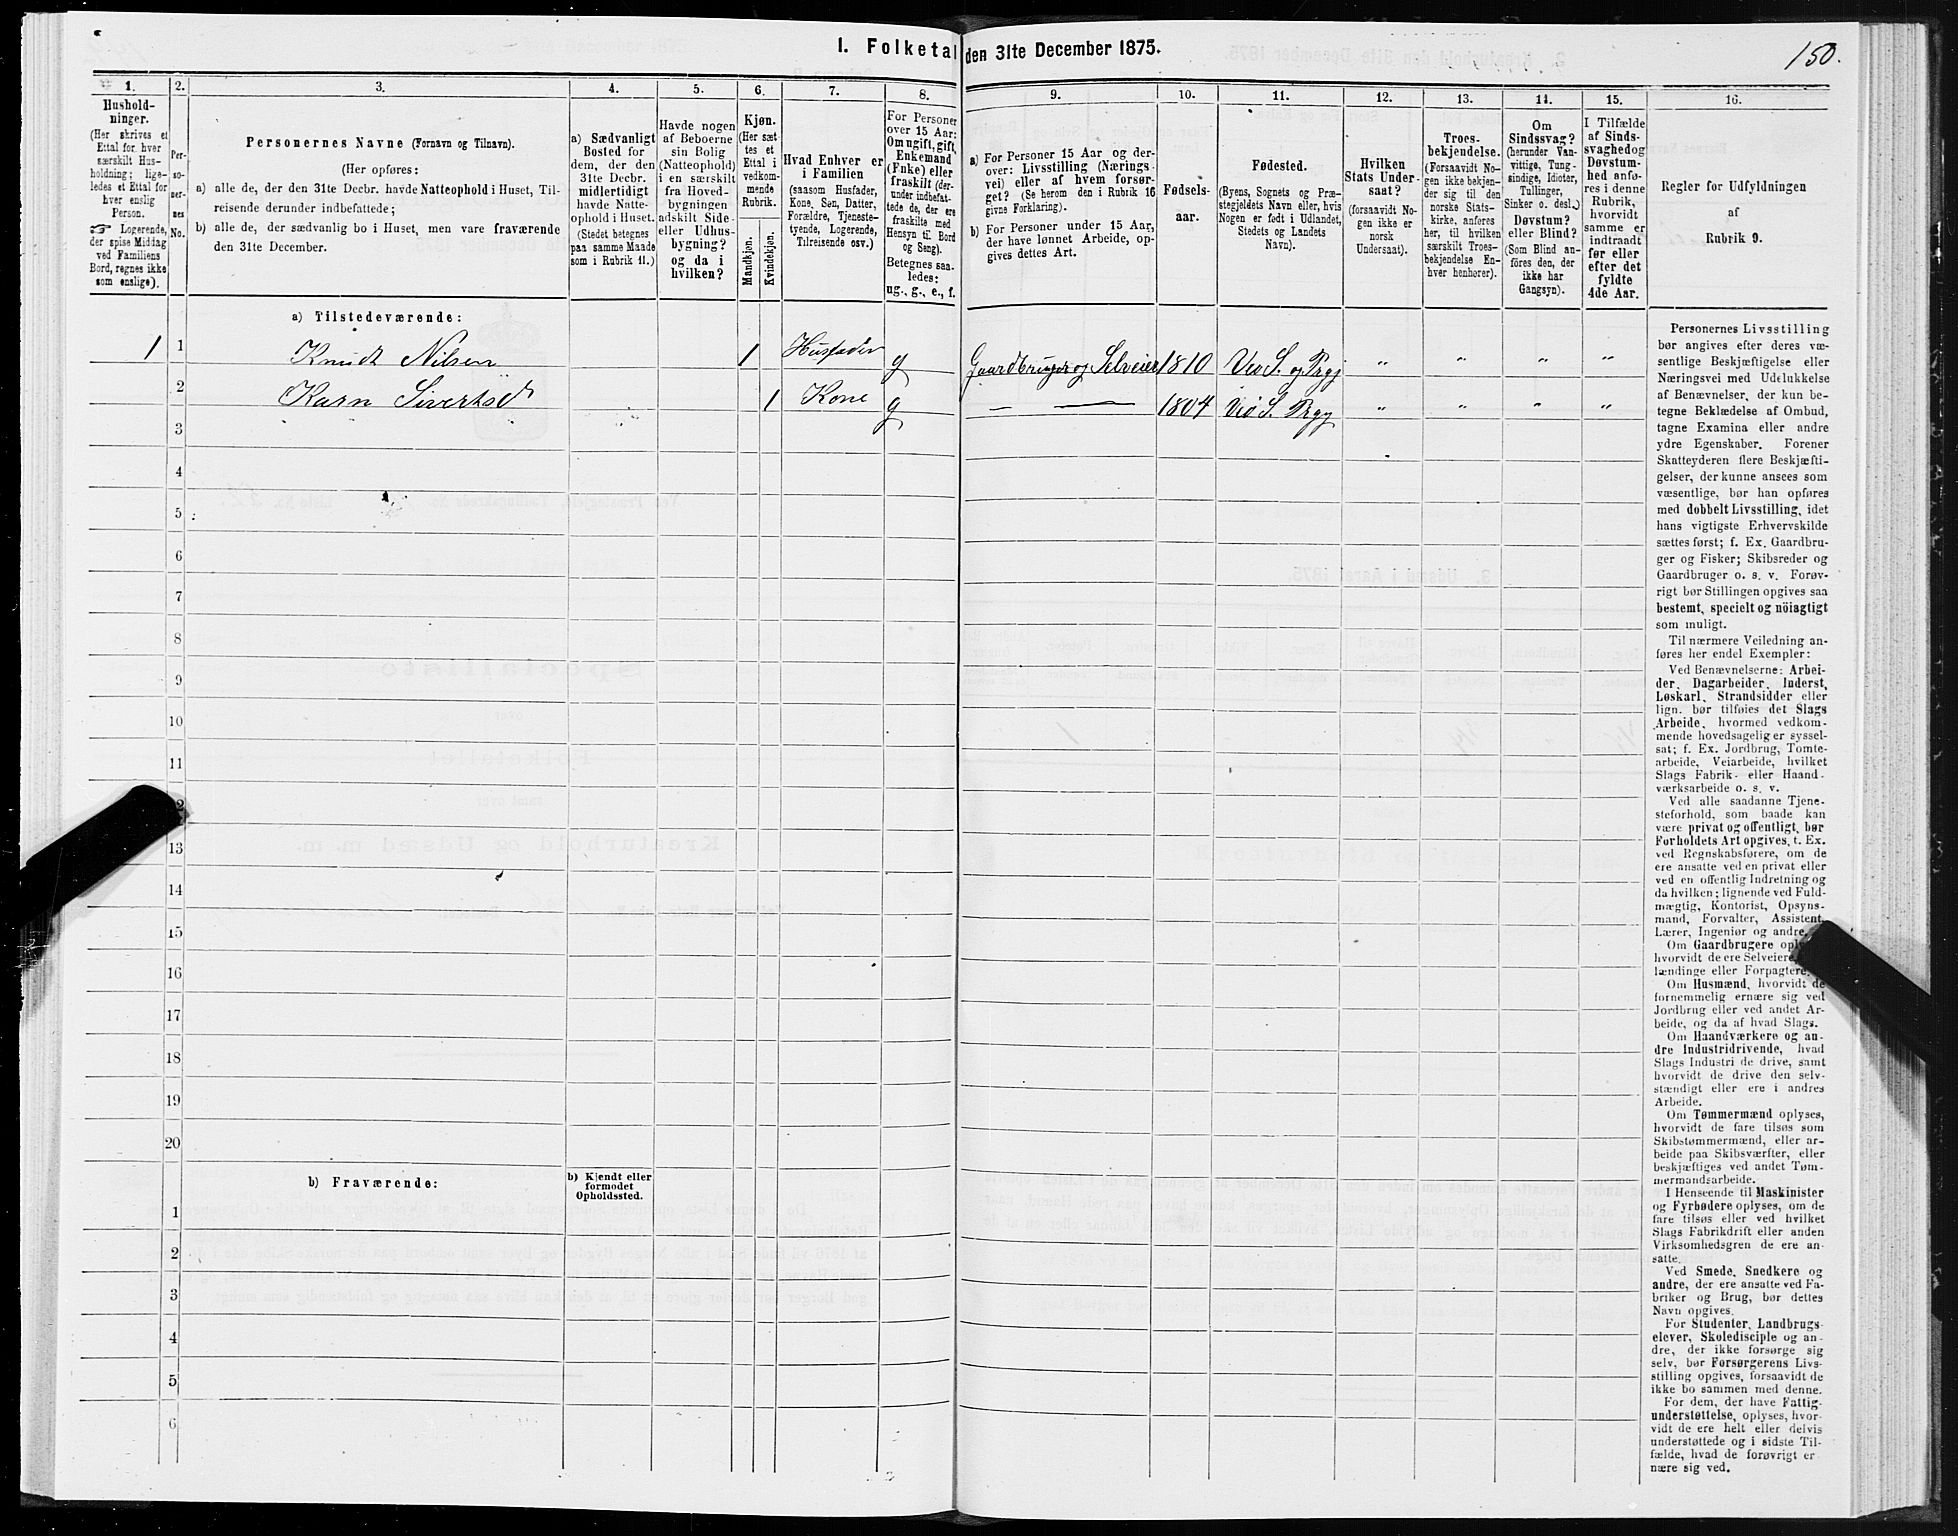 I. Folketal den 31te December 1875.
150.
1.
Hushold-
ninger.
(Her skrives et
Ettal for hver
særskilt Hus-
holdning; lige-
ledes et Ettal for
hver enslig
Person.
☞ Logerende,
der spise Middag
ved Familiens
Bord, regnes ikke
som enslige).
2.
Per-
so-
ner-
nes
No.
3.
Personernes Navne (Fornavn og Tilnavn).
(Her opføres:
a) alle de, der den 31te Decbr. havde Natteophold i Huset, Til-
reisende derunder indbefattede;
b) alle de, der sædvanlig bo i Huset, men vare fraværende
den 31te December.
4.
a) Sædvanligt
Bosted for
dem, der den
31te Decbr.
midlertidigt
havde Natte-
ophold i Huset.
(Stedet betegnes
paa samme Maade
som i Rubrik 11.)
5.
Havde nogen
af Beboerne
sin Bolig
(Natteophold)
i en særskilt
fra Hoved-
bygningen
adskilt Side-
eller Udhus-
bygning?
og da i
hvilken?
6.
Kjøn.
(Her sæt-
tes et
Ettal i
vedkom-
mende
Rubrik.
Mandkjøn.
Kvindekjøn.
7.
Hvad Enhver er
i Familien
(saasom Husfader,
Kone, Søn, Datter,
Forældre, Tjeneste-
tyende, Logerende,
Tilreisende osv.)
8.
For Personer
over 15 Aar:
Om ugift, gift,
Enkemand
(Enke) eller
fraskilt (der-
under indbefat-
tede de, der ere
fraskilte med
Hensyn til Bord
og Seng).
Betegnes saa-
ledes:
ug., g., e., f.
9.
a) For Personer 15 Aar og der-
over: Livsstilling (Nærings-
vei) eller af hvem forsør-
get? (Se herom den i Rubrik 16
givne Forklaring).
b) For Personer under 15 Aar,
der have lønnet Arbeide, op-
gives dettes Art.
10.
Fødsels-
aar.
11.
Fødested.
(Byens, Sognets og Præ-
stegjeldets Navn eller, hvis
Nogen er født i Udlandet,
Stedets og Landets
Navn).
12.
Hvilken
Stats Under-
saat?
(forsaavidt No-
gen ikke er
norsk
Undersaat).
13.
Troes-
bekjendelse.
(Forsaavidt No-
gen ikke bekjen-
der sig til den
norske Stats-
kirke, anføres
her, til hvilken
særskilt Troes-
bekjendelse En-
hver henhører).
14.
Om
Sindssvag?
(herunder Van-
vittige, Tung-
sindige, Idioter,
Tullinger,
Sinker o. desl.)
Døvstum?
eller Blind?
(Som Blind an-
føres den, der
ikke har
Gangsyn).
15.
I Tilfælde
af Sinds-
svaghed og
Døvstum-
hed anfø-
res i denne
Rubrik,
hvorvidt
samme er
indtraadt
før eller
efter det
fyldte
4de Aar.
16.
Regler for Udfyldningen
af
Rubrik 9.
a) Tilstedeværende:
1 1 Knudt Nilsen 1 Husfader g Gaardbruger og Selveier 1810 Veø S. og Prgj " " " "
2 Karn Sivertsd 1 Kone g — — 1804 Veø S. Prgj " " " "
3
4
5
6
7
8
9
10
11
2
13
14
15
16
17
18
19
20
b) Fraværende:
b) Kjendt eller
formodet
Opholdssted.
1
2
3
4
5
6
Personernes Livsstilling
bør angives efter deres væ-
sentlige Beskjæftigelse eller
Næringsvei med Udelukkelse
af Benævnelser, der kun be-
tegne Beklædelse af Ombud,
tagne Examina eller andre
ydre Egenskaber. Forener
Skatteyderen flere Beskjæfti-
gelser, der kunne ansees som
væsentlige, bør han opføres
med dobbelt Livsstilling, idet
hans vigtigste Erhvervskilde
sættes først; f. Ex. Gaardbru-
ger og Fisker; Skibsreder og
Gaardbruger o. s. v. Forøv-
rigt bør Stillingen opgives saa
bestemt, specielt og nöiagtigt
som muligt.
Til nærmere Veiledning an-
føres her endel Exempler:
Ved Benævnelserne: Arbei-
der, Dagarbeider, Inderst,
Løskarl, Strandsidder eller
lign. bør tilføies det Slags
Arbeide, hvormed vedkom-
mende hovedsagelig er syssel-
sat; f. Ex. Jordbrug, Tomte-
arbeide, Veiarbeide, hvilket
Slags Fabrik- eller Haand-
værksarbeide o. s. v.
Ved alle saadanne Tjene-
steforhold, som baade kan
være privat og offentligt, bør
Forholdets Art opgives, t. Ex.
ved Regnskabsførere, om de
ere ansatte ved en privat eller
ved en offentlig Indretning og
da hvilken; lignende ved Fuld-
mægtig, Kontorist, Opsyns-
mand, Forvalter, Assistent,
Lærer, Ingeniør og andre.
Om Gaardbrugere
hvorvidt de ere Selveiere,
lændinge eller Forpagtere.
Om Husmænd, hvorvidt de
fornemmelig ernære sig ved
Jordbrug eller ved andet Ar-
beide, og da af hvad Slags.
Om Haandværkere og an-
dre Industridrivende, hvad
Slags Industri de drive, samt
hvorvidt de drive den selv-
stændigt eller ere i andres
Arbeide.
Om Tømmermænd oplyses,
hvorvidt de fare tilsøs som
Skibstømmermænd, eller ar-
beide paa Skibsværfter, eller
beskjæftiges ved andet Tøm-
mermandsarbeide.
I Henseende til Maskinister
og Fyrbødere oplyses, om de
fare tilsøs eller ved hvilket
Slags Fabrikdrift eller anden
Virksomhedsgren de ere an-
satte.
Ved Smede, Snedkere og
andre, der ere ansatte ved Fa-
briker og Brug, bør dettes
Navn opgives.
For Studenter, Landbrugs-
elever, Skoledisciple og an-
dre, der ikke forsørge sig
selv, bør Forsørgerens Livs-
stilling opgives, forsaavidt de
ikke bo sammen med denne.
For dem, der have Fattig-
understøttelse, oplyses, hvor-
vidt de ere helt eller delvis
understøttede og i sidste Til-
fælde, hvad de forøvrigt er
nære sig ved.